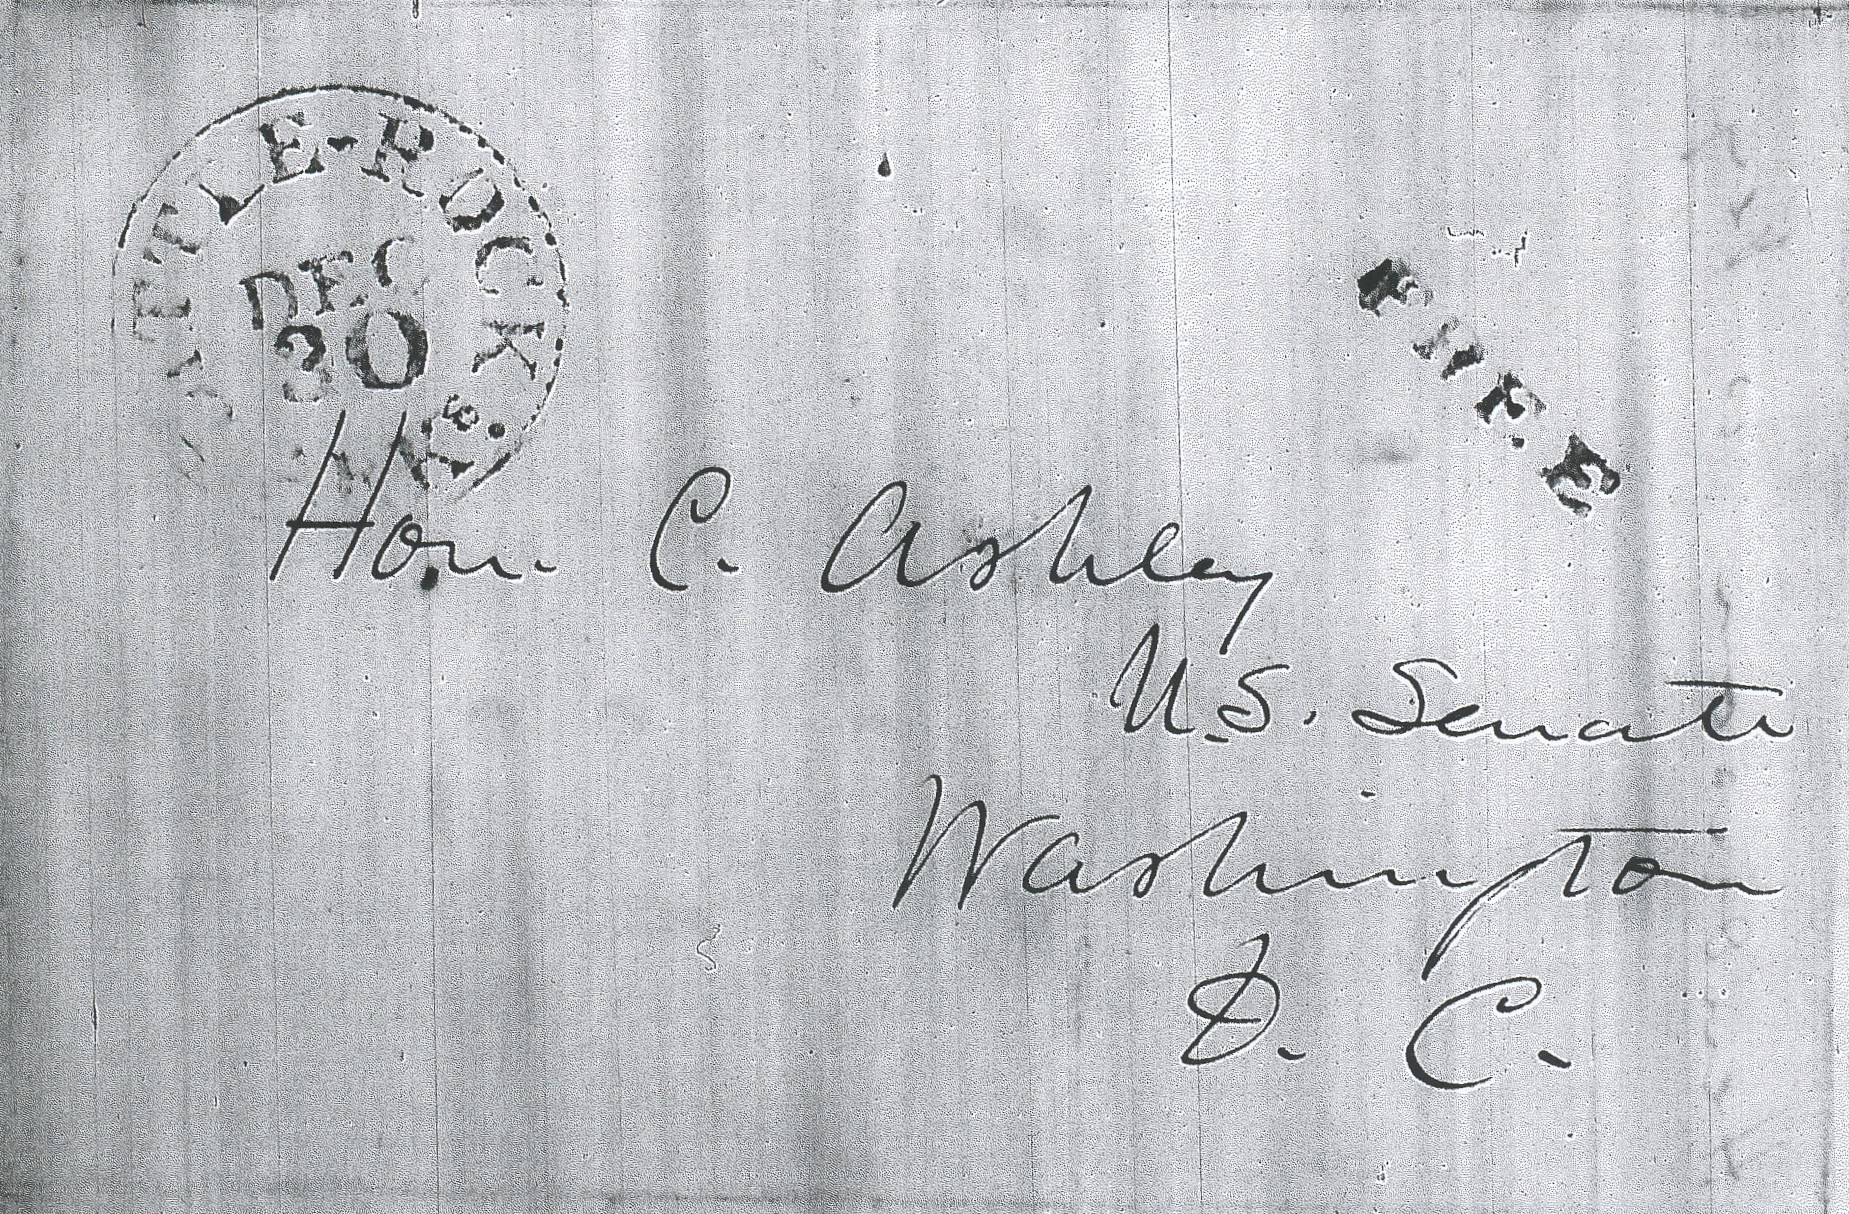 LITTLE-ROCK
DEC
30
ARK.
FREE
Hon. C. Ashley
U.S. Senate
Washington
D. C.